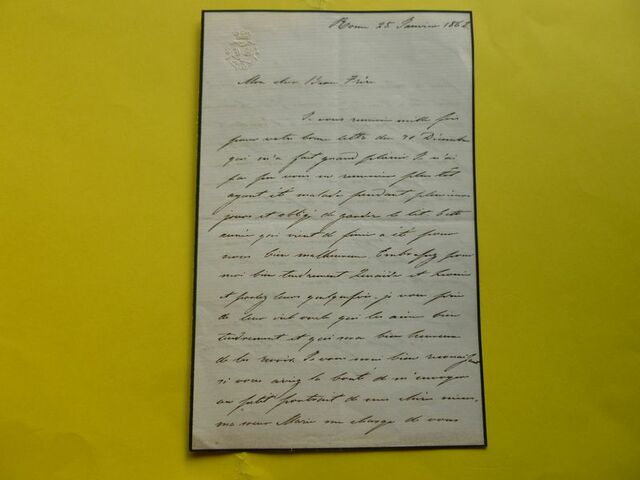 Rome 25 Janvier 1862
Mon cher Beau Frère
Je vous remercie mille fois
pour votre bonne lettre du 31 Décembre
qui m'a fait grand plaisir. Je n'ai
pas pu vous en remercier plus tôt
ayant été malade pendant plusieurs
jours et obligé de garder le lit. Cette
année qui vient de finir a été pour
nous bien malheureuse. Embrassez pour
moi bien tendrement Zenaïde et
et parlez leurs quelquefois, je vous prie
de leur qui les aime bien
tendrement et qui sera bien heureux
de les revoir. Je vous serai bien reconnaissant
si vous aviez la bonté de m'envoyer
un petit portrait de mes chères nièces,
ma sœur Marie me charge de vous